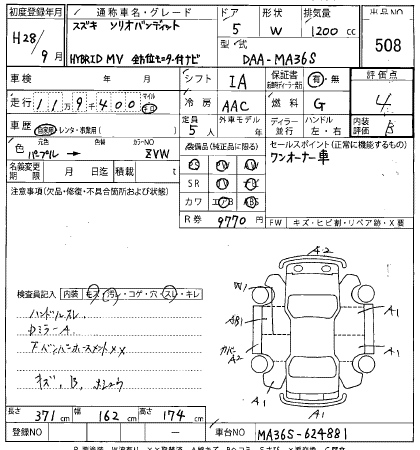 初度登録年月 通称車名・グレード ドア 形状 排気量 出品NO
H28/9月 スズキ ソリオバンディット 5 W 1200cc 508
HYBRID MV 全方位モニター付ナビ 型式 DAA-MA36S
車検 年 月 シフト IA 保証書 有・無 評価点
走行 11万9千400 マイル キロ 冷房 AAC 燃料 G 4
車歴 自家用・レンタ・事業用( ) 定員 5人 外車モデル 年 ディーラー・並行 ハンドル 左・右 内装 B
色 元色 パープル → 色替 カラーNO ZVW 装備品(純正品に限る) セールスポイント(正常に機能するもの)
PS PW ワンオーナー車
名義変更期限 月 日迄 積載 t SR
注意事項(欠品・修復・不具合箇所および状態) カワ エアB ABS
R券 9770円 FW キズ・ヒビ割・リペア跡・X要
検査員記入 内装 キズ・汚レ・コゲ・穴・スレ・キレ
ハンドルスレ
Dミラー A
F バンパーホースメント XX
キズ、B、
A2
W1
AB1
カバー A2
A1
A1
A1
A1
長さ 371cm 幅 162cm 高さ 174cm
登録NO ー 車台NO MA36S-624881